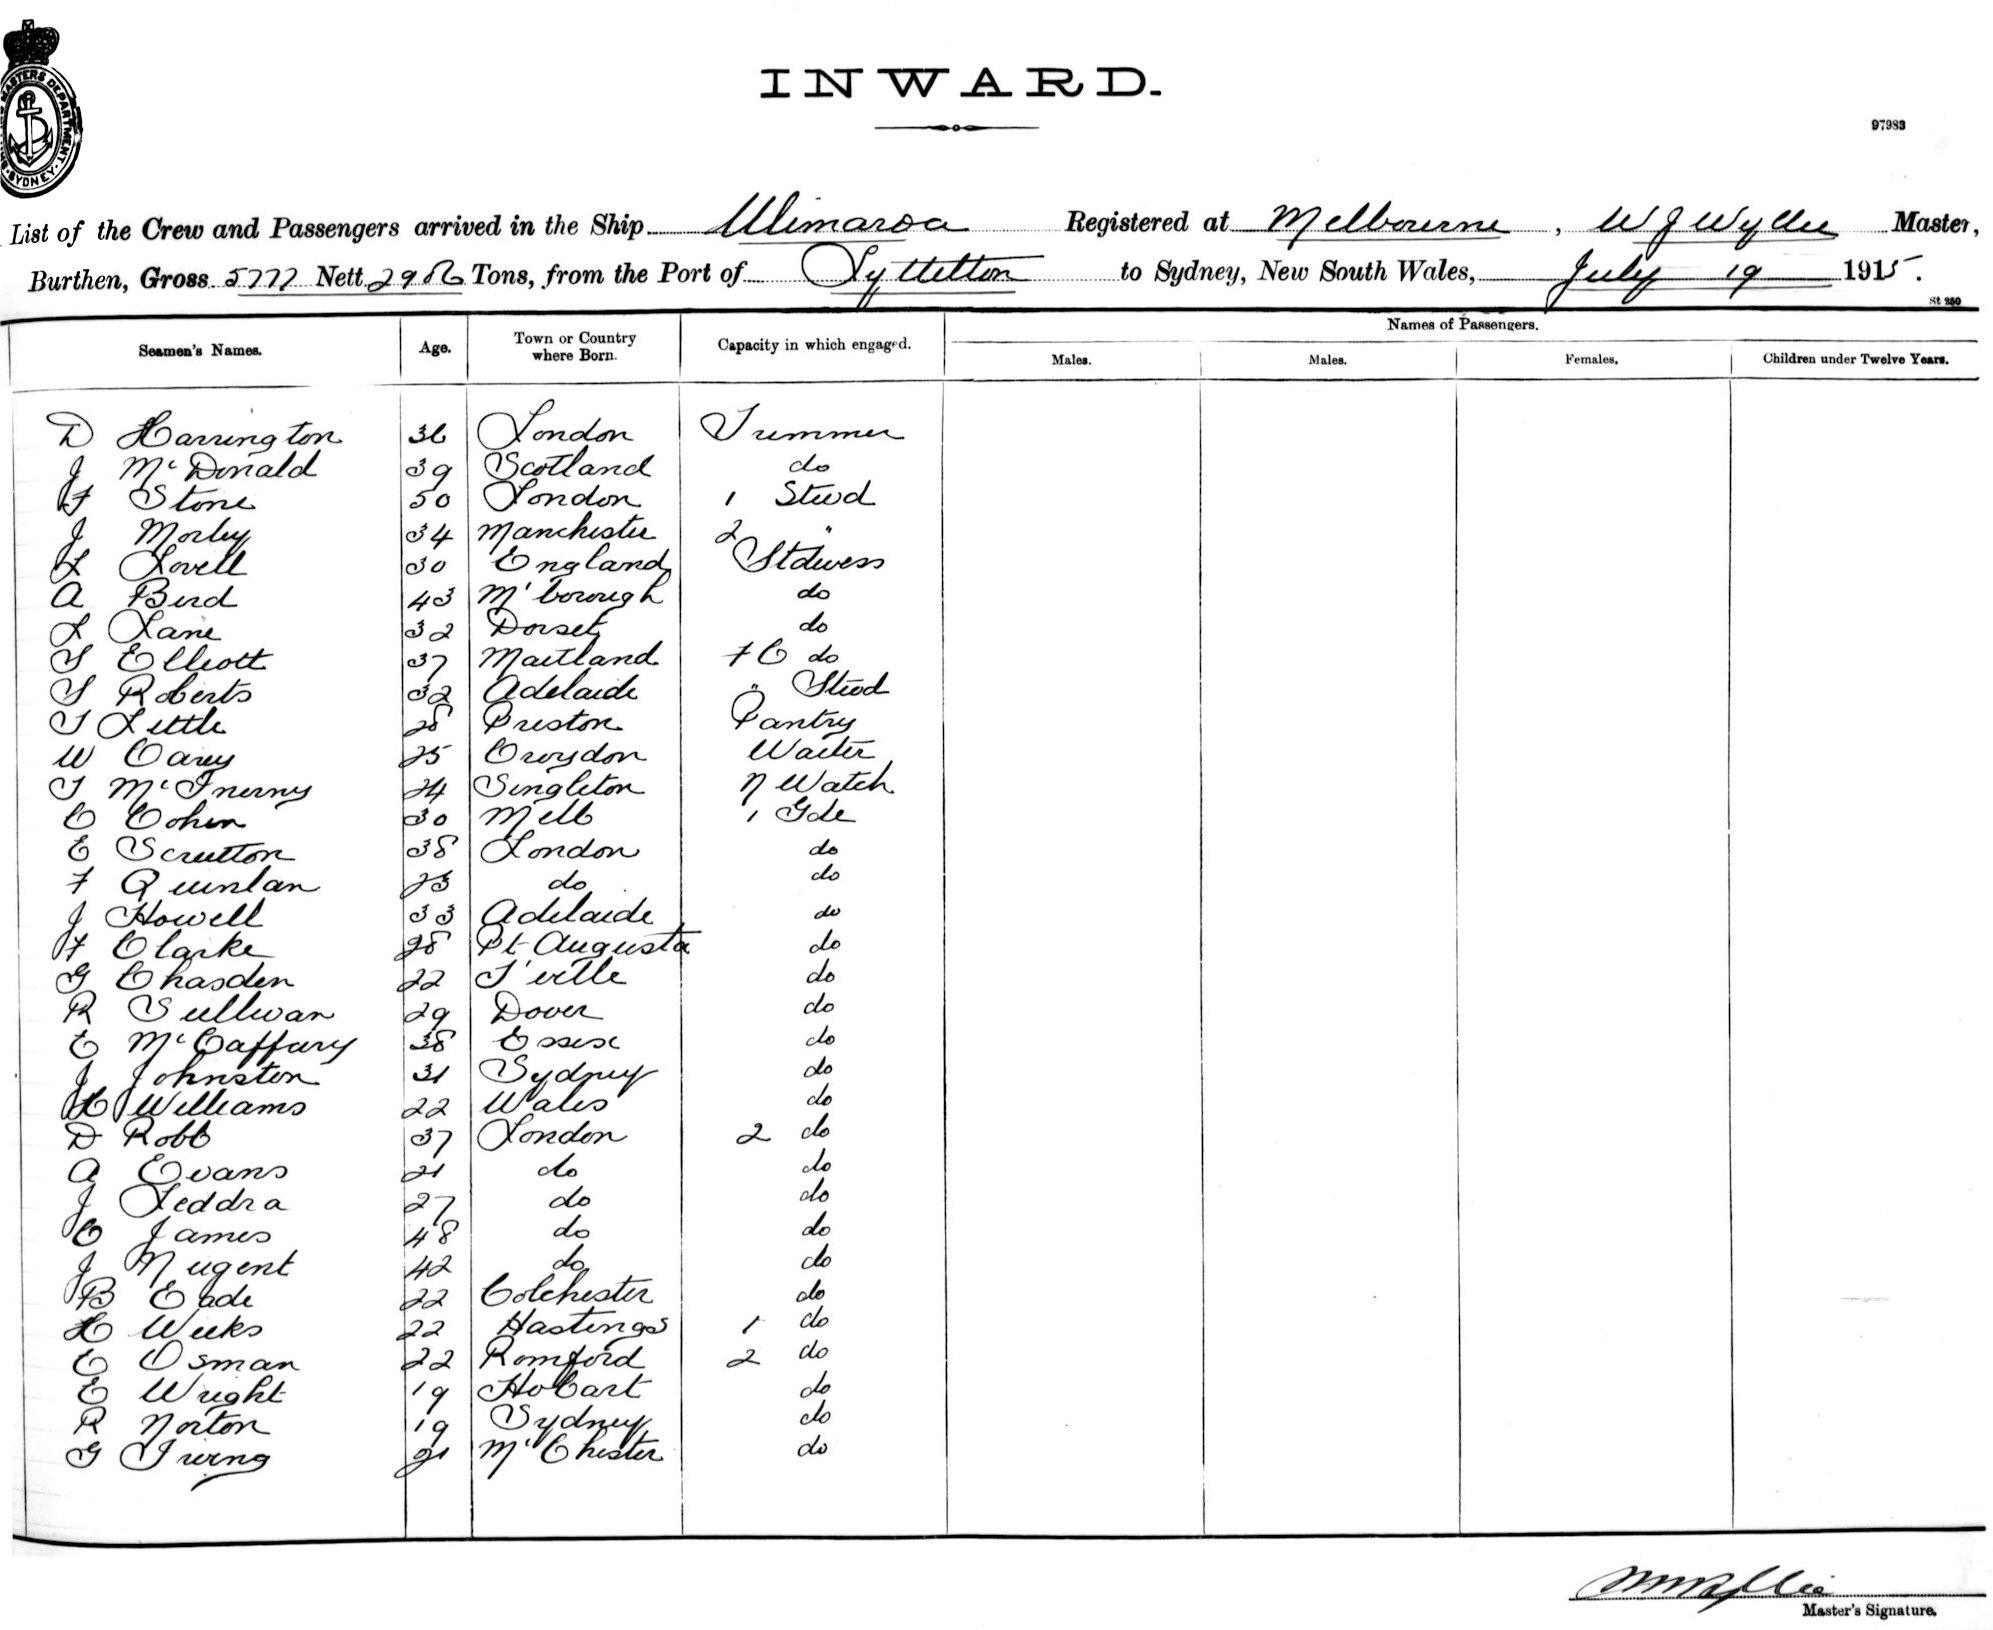 INWARD.
97983
MASTERS DEPARTMENT. SYDNEY.
List of the Crew and Passengers arrived in the Ship Ulimaroa Registered at Melbourne, W J Wyllie Master,
Burthen, Gross 5777 Nett 2986 Tons, from the Port of Lyttelton to Sydney, New South Wales, July 19 1915.
St 250
Names of Passengers.
Seamen's Names. Age. Town or Country where Born. Capacity in which engaged. Males. Males. Females. Children under Twelve Years.
D Harrington 36 London Trimmer
J McDonald 39 Scotland do
F Stone 50 London 1 Stwd
J Morley 34 Manchester 2 "
L Lovell 30 England Stdwess
A Bird 43 M'borough do
L Lane 32 Dorset do
S Elliott 37 Maitland F C do
S Roberts 32 Adelaide " Stwd
T Little 28 Preston Pantry
W Carey 25 Croydon Waiter
T McInerny 24 Singleton N Watch
C Cohen 30 Melb 1 Gde
E Scrutton 38 London do
F Quinlan 23 do do
J Howell 33 Adelaide do
F Clarke 28 Pt Augusta do
G Chasden 22 T'ville do
R Sullivan 29 Dover do
E McCaffery 38 Essex do
J Johnston 31 Sydney do
H Williams 22 Wales do
D Robb 37 London 2 do
A Evans 21 do do
J Leddra 27 do do
C James 48 do do
J Nugent 42 do do
B Eade 22 Colchester do
H Weeks 22 Hastings 1 do
E Osman 22 Romford 2 do
E Wright 19 Hobart do
R Norton 19 Sydney do
G Irving 21 M'Chester do
WJWyllie
Master's Signature.